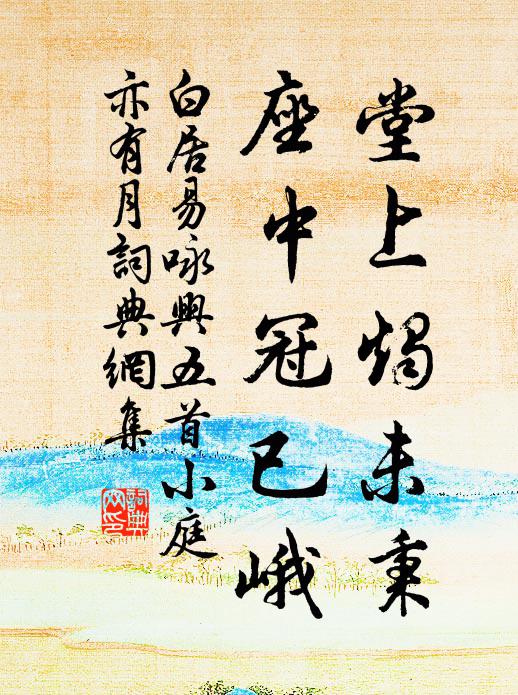 堂上燭未秉
座中冠已峨
白居易咏興五首小庭
亦有月詞典網集